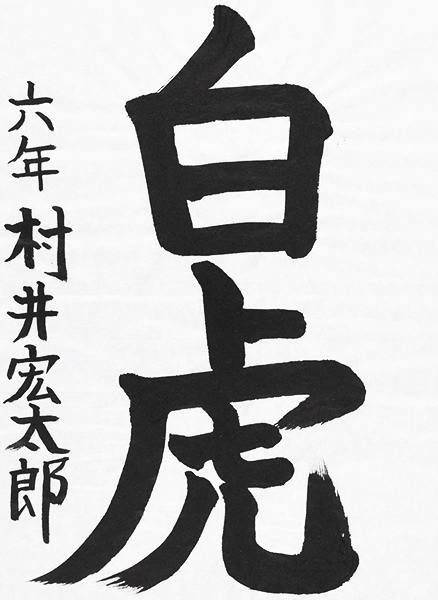 白虎
六年 村井宏太郎